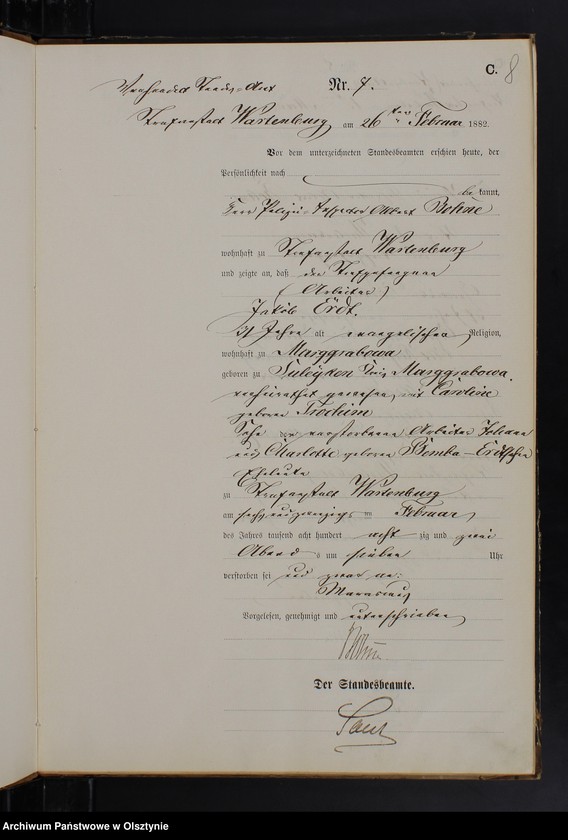 C. 8
Nr. 7.
Wartenburg am 26ten Februar 1882.
Vor dem unterzeichneten Standesbeamten erschien heute, der
Persönlichkeit nach
be kannt,
Böhme
wohnhaft zu Strafanstalt Wartenburg
und zeigte an, daß der Strafgefangene
(Arbeiter)
Jakob Erdt.
Jahre alt evangelischer Religion,
wohnhaft zu Marggrabowa
geboren zu Suleyken Kreis Marggrabowa,
verheirathet gewesen mit Caroline
geborene
Sohn der verstorbenen Arbeiter Johann
und Charlotte geborene Bemba-Erdtschen
Eheleute
zu Strafanstalt Wartenburg
am sechsundzwanzigsten Februar
des Jahres tausend acht hundert acht zig und zwei
Abends um sieben Uhr
verstorben sei und zwar an:
Marasmus
Vorgelesen, genehmigt und unterschrieben
Böhme
Der Standesbeamte.
Archiwum Państwowe w Olsztynie